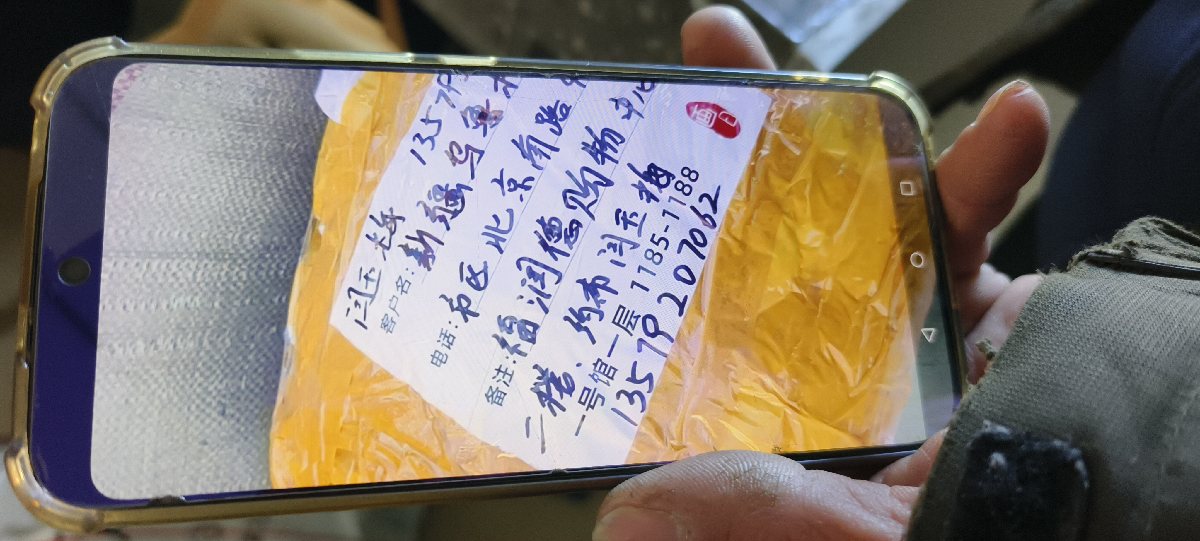 闫玉梅 13579
客户名: 新疆乌鲁木
电话: 市区北京南路
备注: 福润德购物中心
二楼、约布 闫玉梅
一号馆一层 1185-1188
13579207062